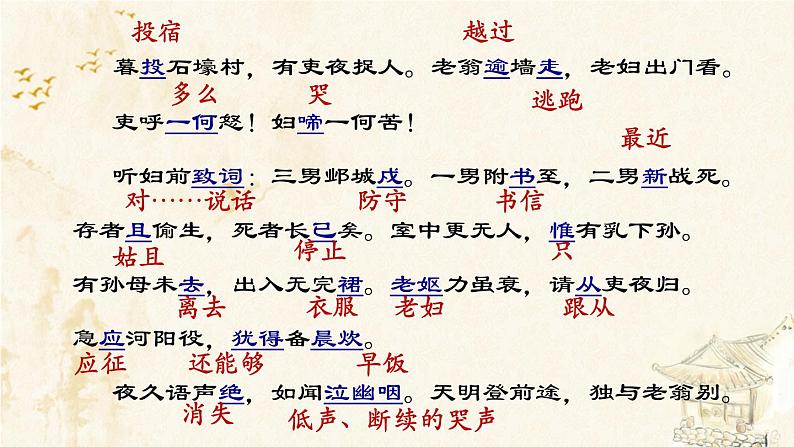 投宿 越过
暮投石壕村，有吏夜捉人。老翁逾墙走，老妇出门看。
多么 哭 逃跑
吏呼一何怒！妇啼一何苦！
最近
听妇前致词：三男邺城戍。一男附书至，二男新战死。
对……说话 防守 书信
存者且偷生，死者长已矣。室中更无人，惟有乳下孙。
姑且 停止 只
有孙母未去，出入无完裙。老妪力虽衰，请从吏夜归。
离去 衣服 老妇 跟从
急应河阳役，犹得备晨炊。
应征 还能够 早饭
夜久语声绝，如闻泣幽咽。天明登前途，独与老翁别。
消失 低声、断续的哭声